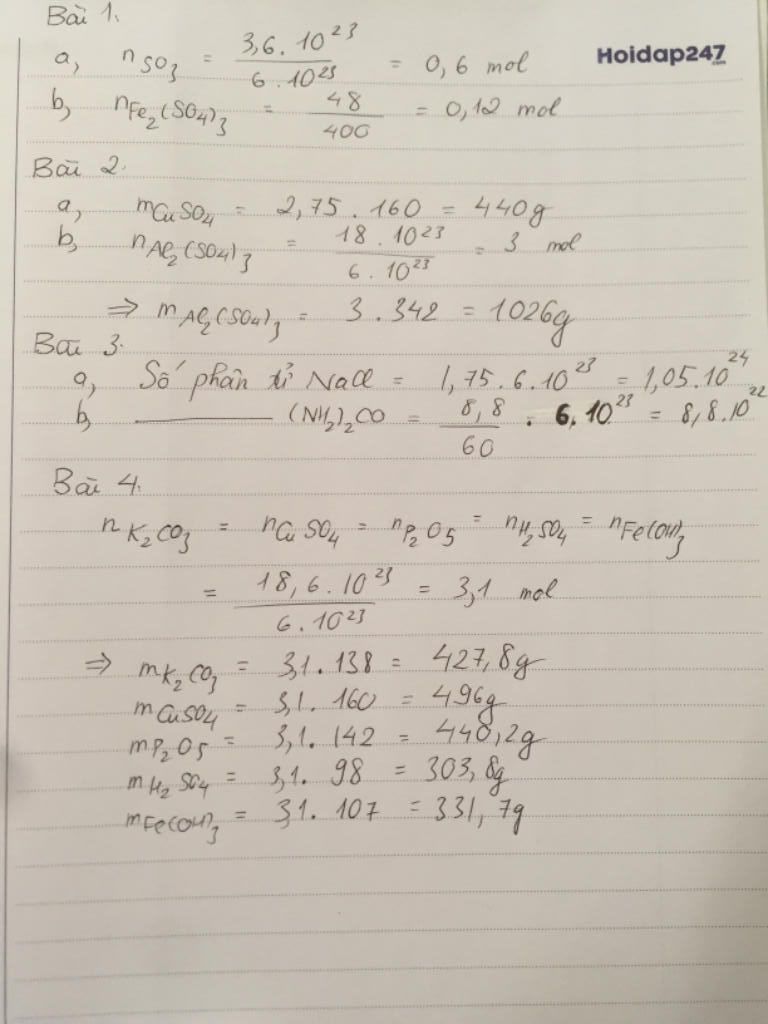 Bài 1.
Hoidap247.com
a, nSO₃ = 3,6.10²³ / 6.10²³ = 0,6 mol
b, nFe₂(SO₄)₃ = 48 / 400 = 0,12 mol
Bài 2.
a, mCuSO₄ = 2,75.160 = 440g
b, nAl₂(SO₄)₃ = 18.10²³ / 6.10²³ = 3 mol
⇒ mAl₂(SO₄)₃ = 3.342 = 1026g
Bài 3.
a, Số phân tử NaCl = 1,75.6.10²³ = 1,05.10²⁴
b, ——— (NH₂)₂CO = 8,8 / 60 . 6.10²³ = 8,8.10²²
Bài 4.
nK₂CO₃ = nCuSO₄ = nP₂O₅ = nH₂SO₄ = nFe(OH)₃
= 18,6.10²³ / 6.10²³ = 3,1 mol
⇒ mK₂CO₃ = 3,1.138 = 427,8g
mCuSO₄ = 3,1.160 = 496g
mP₂O₅ = 3,1.142 = 440,2g
mH₂SO₄ = 3,1.98 = 303,8g
mFe(OH)₃ = 3,1.107 = 331,7g